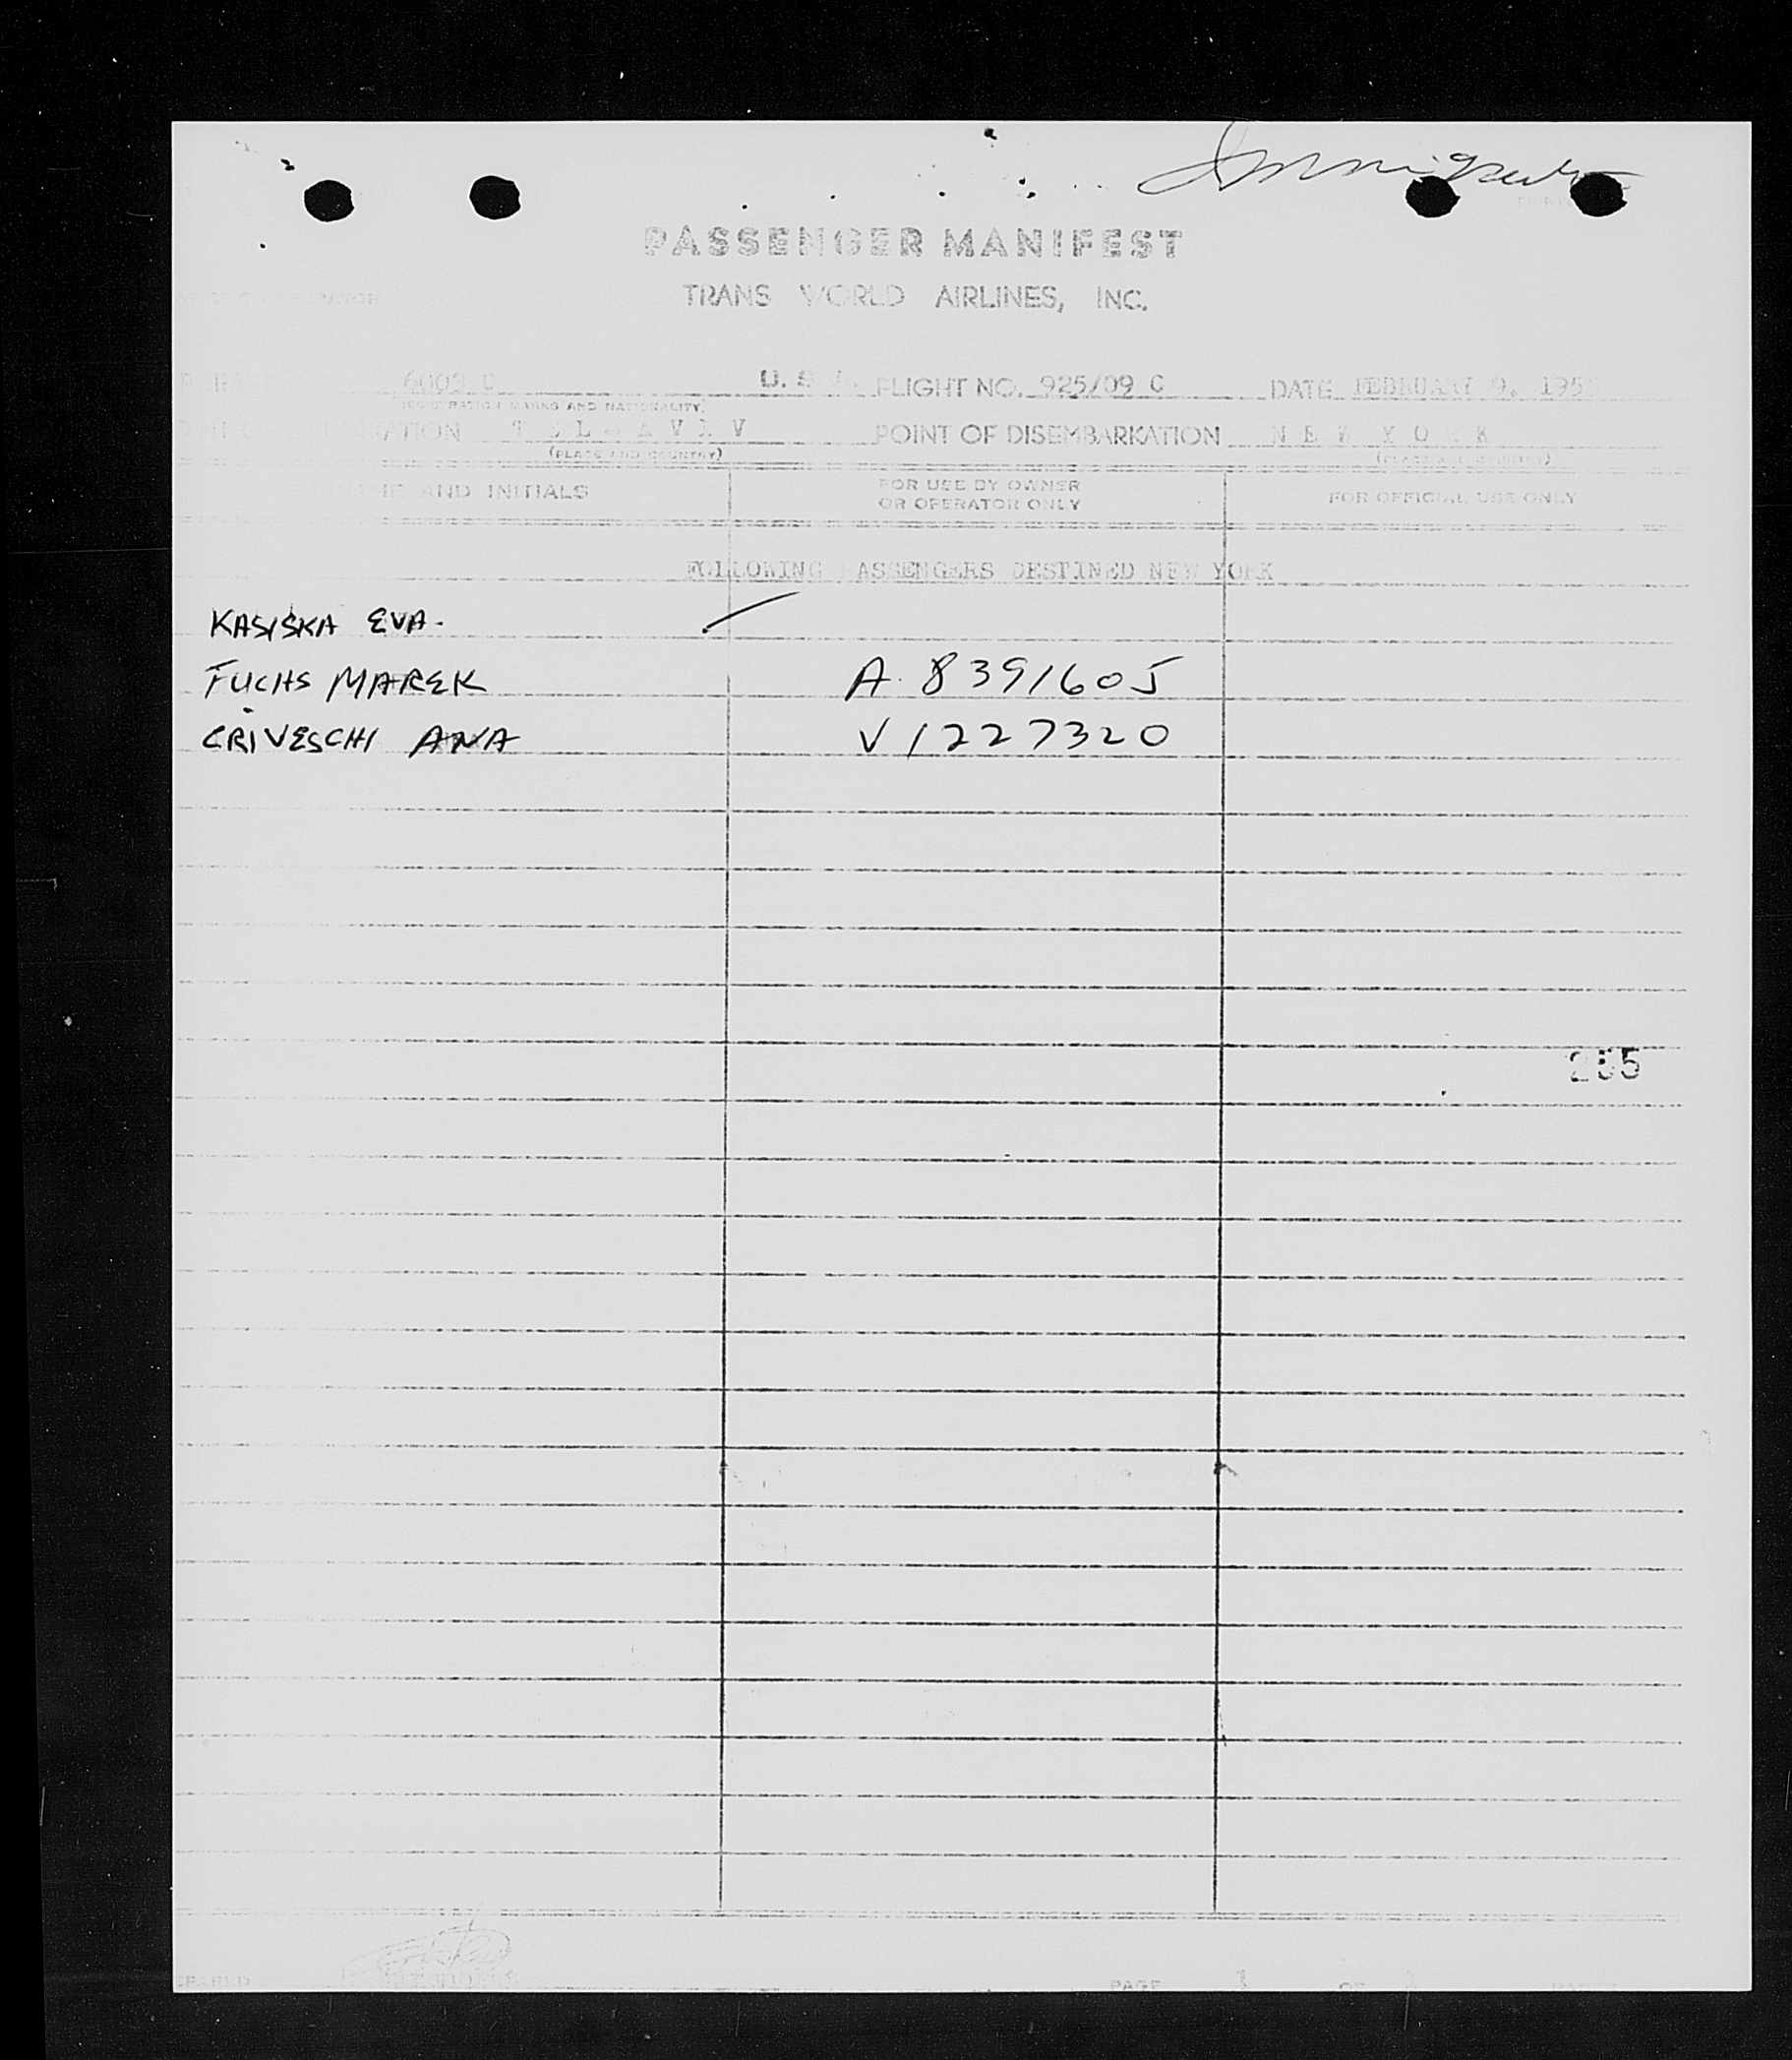 Immigration
PASSENGER MANIFEST
TRANS WORLD AIRLINES, INC.
6003 C U. S. FLIGHT NO. 925/09 C DATE FEBRUARY 9, 195
(REGISTRATION MARKS AND NATIONALITY)
TEL-AVIV POINT OF DISEMBARKATION NEW YORK
(PLACE AND COUNTRY) (PLACE AND COUNTRY)
AND INITIALS FOR USE BY OWNER OR OPERATOR ONLY FOR OFFICIAL USE ONLY
FOLLOWING PASSENGERS DESTINED NEW YORK
KASISKA EVA.
FUCHS MAREK A. 8391605
CRIVESCHI ANA V1227320
PAGE OF